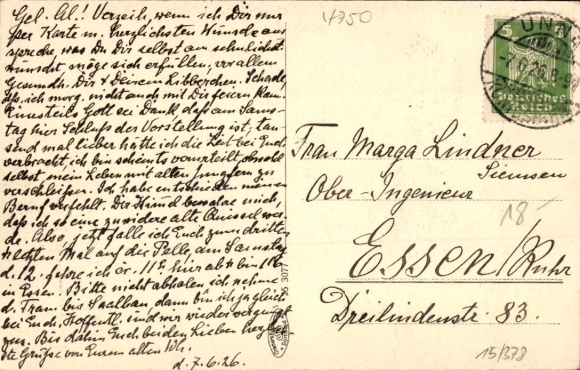 Gel. Al.! Verzeih, wenn ich Dir nur
per Karte m. herzlichsten Wünsche aus
spreche, was Du Dir selbst am sehnlichst.
wünschst möge sich erfüllen, vor allem
Gesundh. Dir & Deinem Liebchen. Schade,
daß ich morg. nicht auch mit Dir feiern kann.
Einesteils Gott sei Dank, daß am Sams-
tag hier Schluß der Vorstellung ist, tau-
send mal lieber hätte ich die Zeit bei Euch
verbracht, ich bin scheints verurteilt
selbst mein Leben mit alten Jungfern zu
verschleißen. Ich habe entschieden meinen
Beruf verfehlt. Der Himmel bewahre mich,
daß ich so eine zuwidere alte werde
Also, jetzt falle ich Euch zum dritten
& letzten Mal auf die Pelle am Samstag
d. 12. fahre ich hier ab &
in Essen. Bitte nicht abholen, ich nehme
d. Tram bis Saalbau, dann bin ich ja gleich
bei Euch. Hoffentl. sind wir wieder vergnügt
Bis dahin Euch beiden Lieben herzlich-
ste Grüße von Eurem alten
d. 7.6.26.
4750
5 5
UNNA
Deutsches Reich
Frau Marga Lindner
Siemsen
Ober-Ingenieur
18-
Essen/Ruhr
Dreilindenstr. 83.
15/378
3077